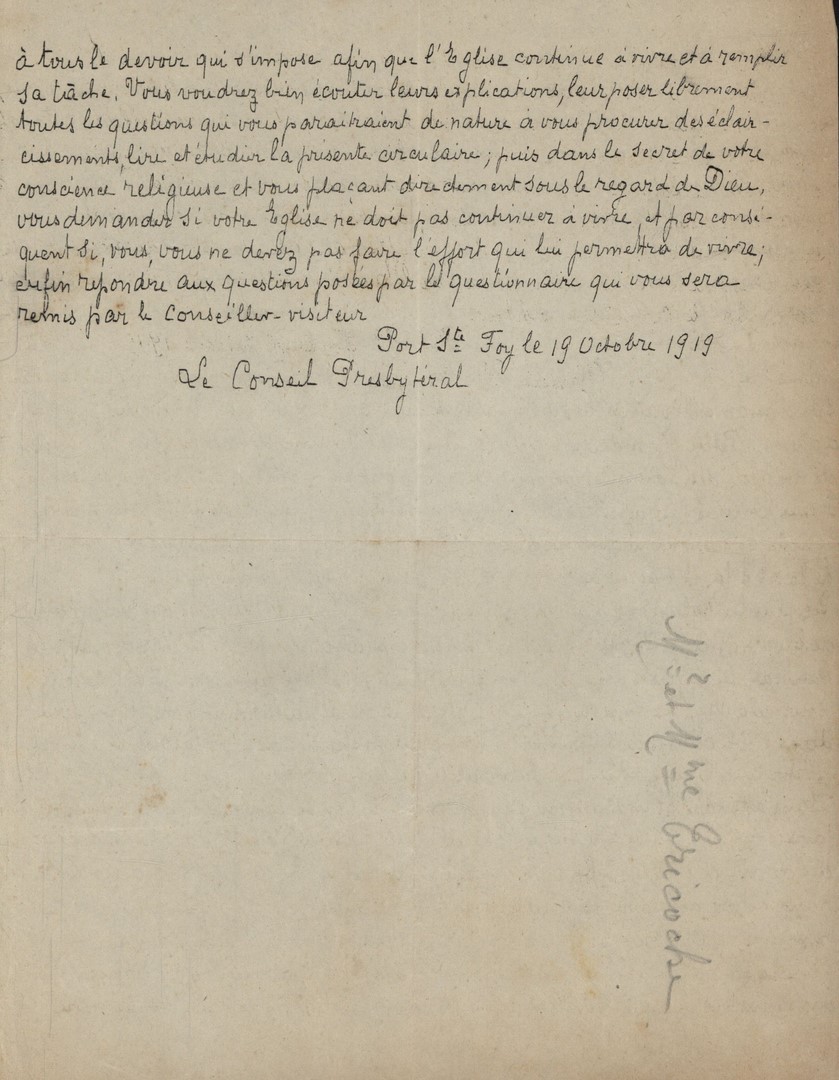 à tous le devoir qui s'impose afin que l'Eglise continue à vivre et à remplir
sa tâche. Vous voudrez bien écouter leurs explications, leur poser librement
toutes les questions qui vous paraitraient de nature à vous procurer des éclair-
cissements, lire et étudier la présente circulaire ; puis dans le secret de votre
conscience religieuse et vous plaçant directement sous le regard de Dieu,
vous demander si votre Eglise ne doit pas continuer à vivre, et par consé-
quent si, vous, vous ne devez pas faire l'effort qui lui permettra de vivre ;
enfin répondre aux questions posées par le questionnaire qui vous sera
remis par le Conseiller-visiteur
Port Ste Foy le 19 Octobre 1919
Le Conseil Presbytéral
Mr et Mme Bricoche